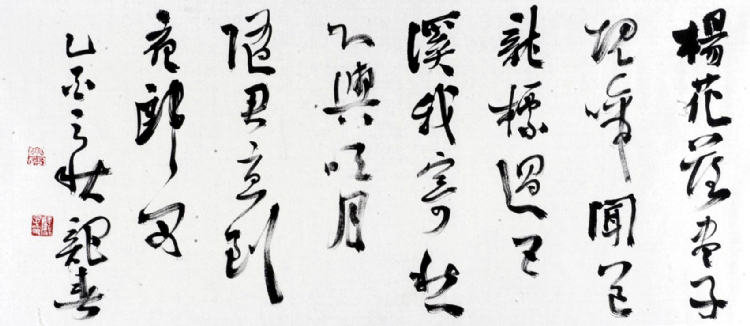 楊花落盡子
規啼聞道
龍標過五
溪我寄愁
心與明月
隨君直到
夜郎西
乙酉之秋